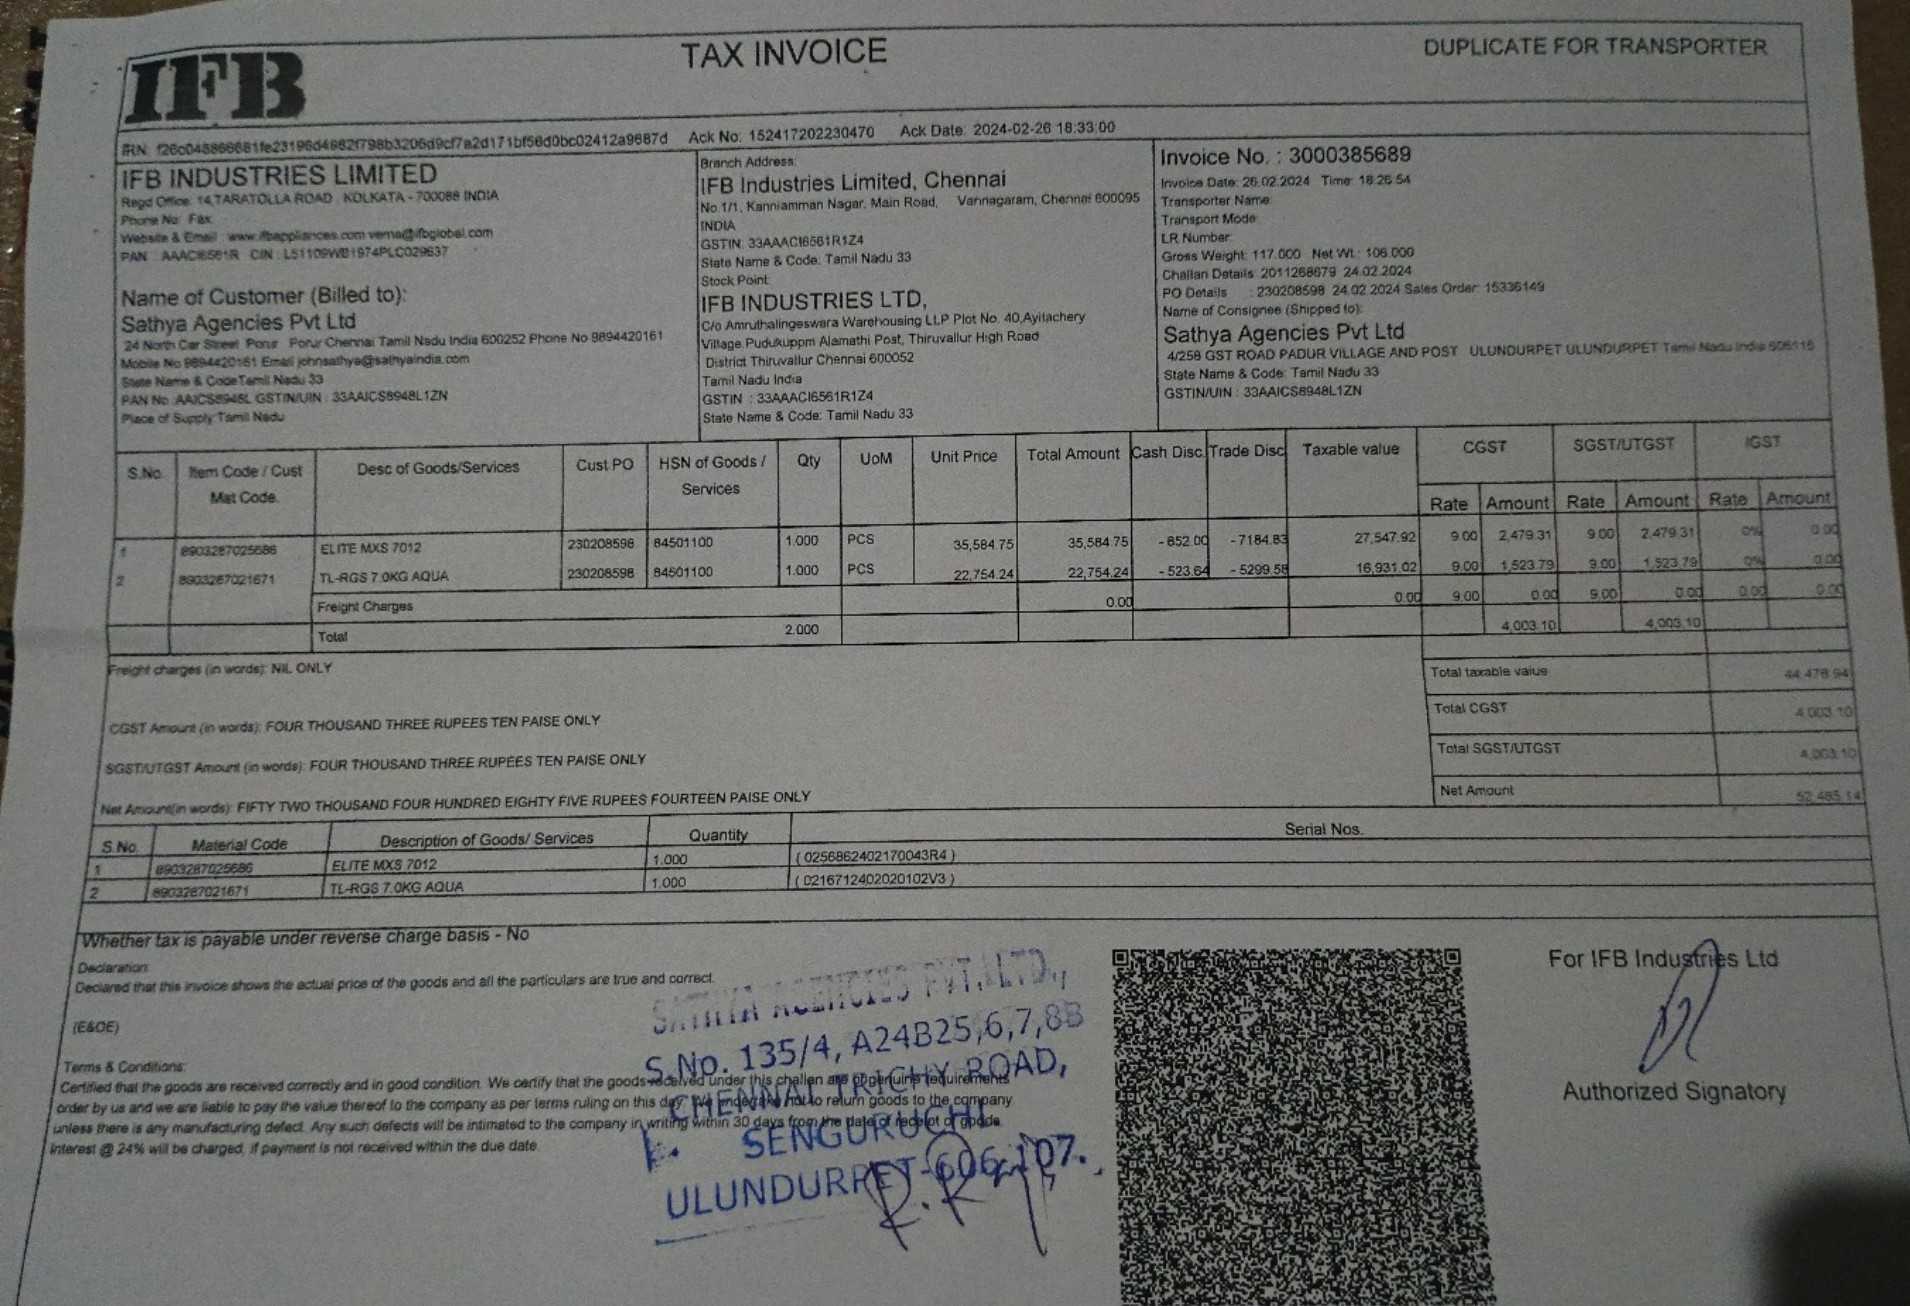 IFB
TAX INVOICE
DUPLICATE FOR TRANSPORTER
IRN: Ack No: 152417202230470 Ack Date: 2024-02-26 18:33:00
IFB INDUSTRIES LIMITED
Regd Office: 14,TARATOLLA ROAD KOLKATA - 700088 INDIA
Phone No: Fax:
Website & Email : www.ifbappliances.com verna@ifbglobal.com
PAN : AAACI6561R CIN : L51109WB1974PLC029637
Name of Customer (Billed to):
Sathya Agencies Pvt Ltd
24 North Car Street Porur Porur Chennai Tamil Nadu India 600252 Phone No 9894420161
Mobile No 9894420161 Email johnsathya@sathyaindia.com
State Name & CodeTamil Nadu 33
PAN No :AAICS8948L GSTIN/UIN : 33AAICS8948L1ZN
Place of Supply:Tamil Nadu
Branch Address:
IFB Industries Limited, Chennai
No.1/1, Kanniamman Nagar, Main Road, Vannagaram, Chennai 600095
INDIA
GSTIN: 33AAACI6561R1Z4
State Name & Code: Tamil Nadu 33
Stock Point:
IFB INDUSTRIES LTD,
C/o Amruthalingeswara Warehousing LLP Plot No. 40,Ayilachery
Village Pudukuppm Alamathi Post, Thiruvallur High Road
District Thiruvallur Chennai 600052
Tamil Nadu India
GSTIN : 33AAACI6561R1Z4
State Name & Code: Tamil Nadu 33
Invoice No. : 3000385689
Invoice Date: 26.02.2024 Time: 18:26:54
Transporter Name:
Transport Mode:
LR Number:
Gross Weight: 117.000 Net Wt.: 106.000
Challan Details: 2011268679 24.02.2024
PO Details : 230208598 24.02.2024 Sales Order: 15336149
Name of Consignee (Shipped to):
Sathya Agencies Pvt Ltd
4/258 GST ROAD PADUR VILLAGE AND POST ULUNDURPET ULUNDURPET Tamil Nadu India
State Name & Code: Tamil Nadu 33
GSTIN/UIN : 33AAICS8948L1ZN
S.No. Item Code / Cust Mat Code. Desc of Goods/Services Cust PO HSN of Goods / Services Qty UoM Unit Price Total Amount Cash Disc. Trade Disc Taxable value CGST SGST/UTGST IGST
Rate Amount Rate Amount Rate Amount
1 8903287025686 ELITE MXS 7012 230208598 84501100 1.000 PCS 35,584.75 35,584.75 -852.00 -7184.83 27,547.92 9.00 2,479.31 9.00 2,479.31 0% 0.00
2 8903287021671 TL-RGS 7.0KG AQUA 230208598 84501100 1.000 PCS 22,754.24 22,754.24 -523.64 -5299.58 16,931.02 9.00 1,523.79 9.00 1,523.79 0% 0.00
Freight Charges 0.00 0.00 9.00 0.00 9.00 0.00 0.00 0.00
Total 2.000 4,003.10 4,003.10
Freight charges (in words): NIL ONLY
Total taxable value 44,478.94
CGST Amount (in words): FOUR THOUSAND THREE RUPEES TEN PAISE ONLY
Total CGST 4,003.10
SGST/UTGST Amount (in words): FOUR THOUSAND THREE RUPEES TEN PAISE ONLY
Total SGST/UTGST 4,003.10
Net Amount(in words): FIFTY TWO THOUSAND FOUR HUNDRED EIGHTY FIVE RUPEES FOURTEEN PAISE ONLY
Net Amount 52,485.14
S.No. Material Code Description of Goods/ Services Quantity Serial Nos.
1 8903287025686 ELITE MXS 7012 1.000 ( 0256862402170043R4 )
2 8903287021671 TL-RGS 7.0KG AQUA 1.000 ( 0216712402020102V3 )
Whether tax is payable under reverse charge basis - No
Declaration:
Declared that this invoice shows the actual price of the goods and all the particulars are true and correct.
(E&OE)
Terms & Conditions:
Certified that the goods are received correctly and in good condition. We certify that the goods received under this challan are of genuine requirements
order by us and we are liable to pay the value thereof to the company as per terms ruling on this day. We undertake not to return goods to the company
unless there is any manufacturing defect. Any such defects will be intimated to the company in writing within 30 days from the date of receipt of goods.
Interest @ 24% will be charged, if payment is not received within the due date.
SATHYA AGENCIES PVT.LTD.,
S.No. 135/4, A24B25,6,7,8B
CHENNAI TRICHY ROAD,
SENGURUCHI
ULUNDURPET-606 107.
For IFB Industries Ltd
Authorized Signatory